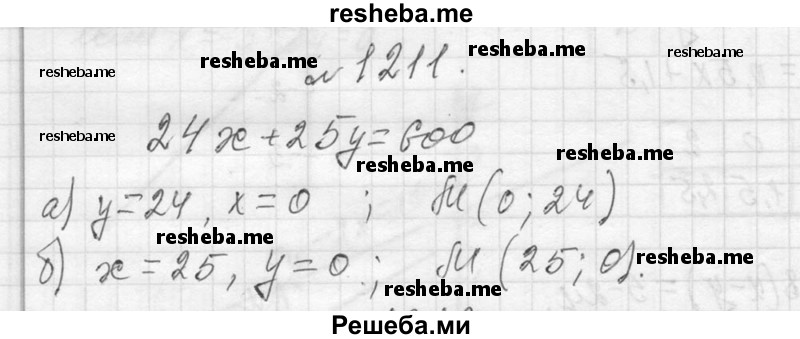 resheba.me
№ 1211.
resheba.me resheba.me resheba.me resheba.me
24x + 25y = 600
resheba.me resheba.me resheba.me
а) y = 24, x = 0 ; М (0; 24)
resheba.me
б) x = 25, y = 0 ; М (25; 0).
resheba.me resheba.me
Решеба.ми